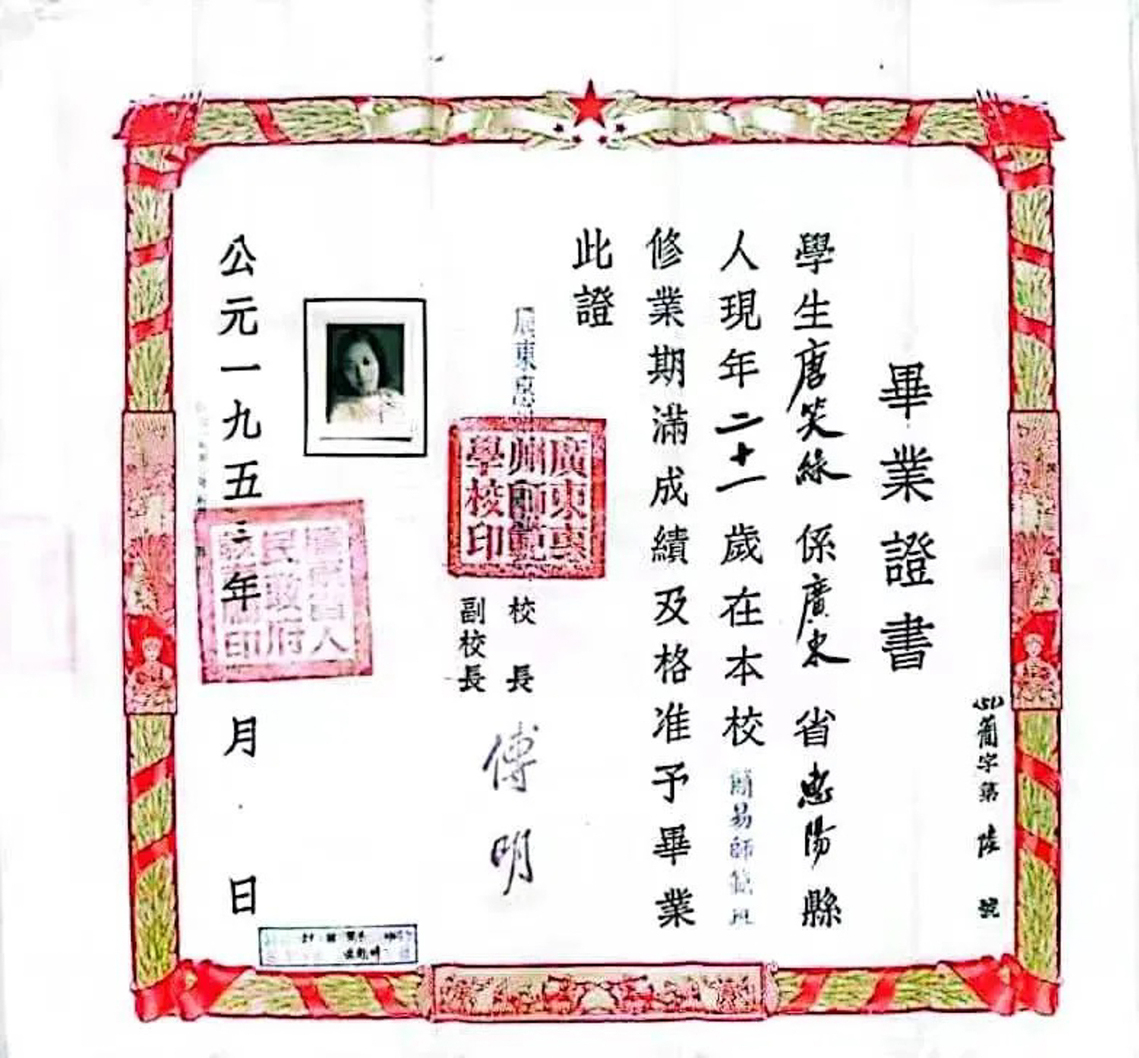 畢業證書
學生唐笑緣係廣東省惠陽縣
人現年二十一歲在本校簡易師範班
修業期滿成績及格准予畢業
此證
廣東惠州師範學校印
校長
副校長
傅明
公元一九五三年月日
字第陸號